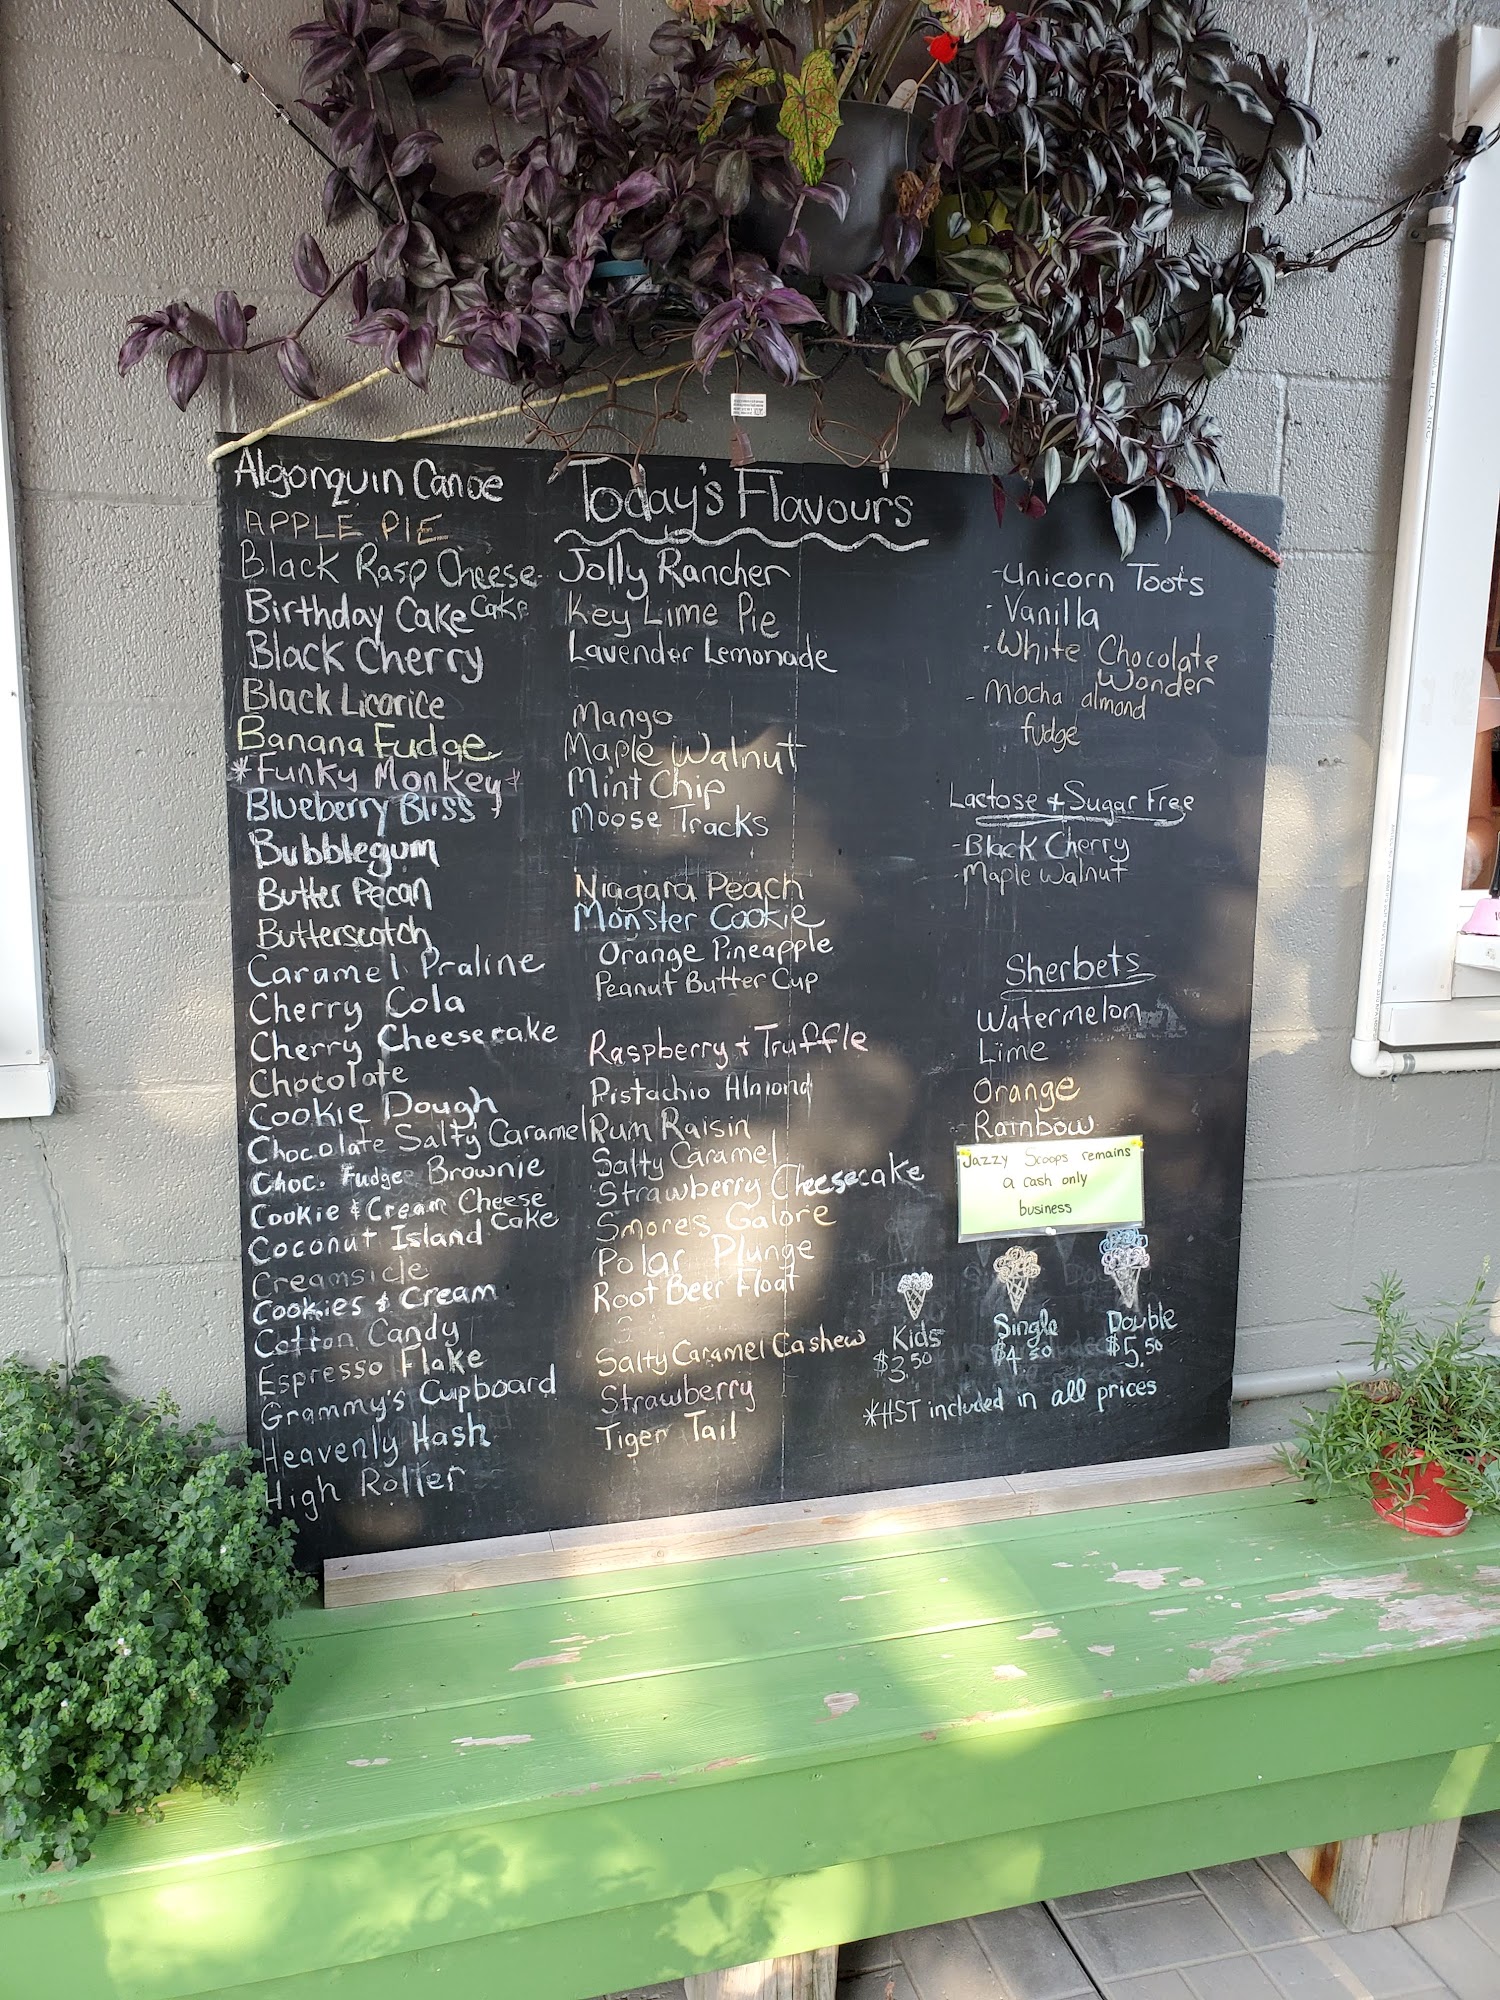 Algonquin Canoe
APPLE PIE
Black Rasp Cheese
Cake
Birthday Cake
Black Cherry
Black Licorice
Banana Fudge
*Funky Monkey*
Blueberry Bliss
Bubblegum
Butter Pecan
Butterscotch
Caramel Praline
Cherry Cola
Cherry Cheesecake
Chocolate
Cookie Dough
Chocolate Salty Caramel
Choc. Fudge Brownie
Cookie & Cream Cheese
Cake
Coconut Island
Creamsicle
Cookies & Cream
Cotton Candy
Espresso Flake
Grammy's Cupboard
Heavenly Hash
High Roller
Today's Flavours
Jolly Rancher
Key Lime Pie
Lavender Lemonade
Mango
Maple Walnut
Mint Chip
Moose Tracks
Niagara Peach
Monster Cookie
Orange Pineapple
Peanut Butter Cup
Raspberry + Truffle
Pistachio Almond
Rum Raisin
Salty Caramel
Strawberry Cheesecake
Smore's Galore
Polar Plunge
Root Beer Float
Salty Caramel Cashew
Strawberry
Tiger Tail
-Unicorn Toots
-Vanilla
-White Chocolate
Wonder
-Mocha almond
fudge
Lactose + Sugar Free
-Black Cherry
-Maple Walnut
Sherbets
Watermelon
Lime
Orange
Rainbow
Jazzy Scoops remains
a cash only
business
Kids
$3.50
Single
$4.50
Double
$5.50
*HST included in all prices